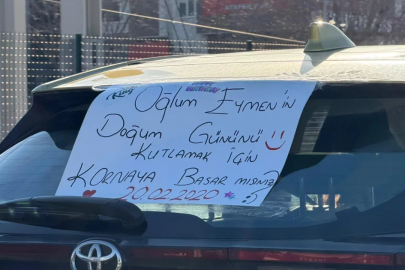 Oğlum Eymen'in
Doğum Gününü
Kutlamak İçin
Kornaya Basar mısınız?
20.02.2020